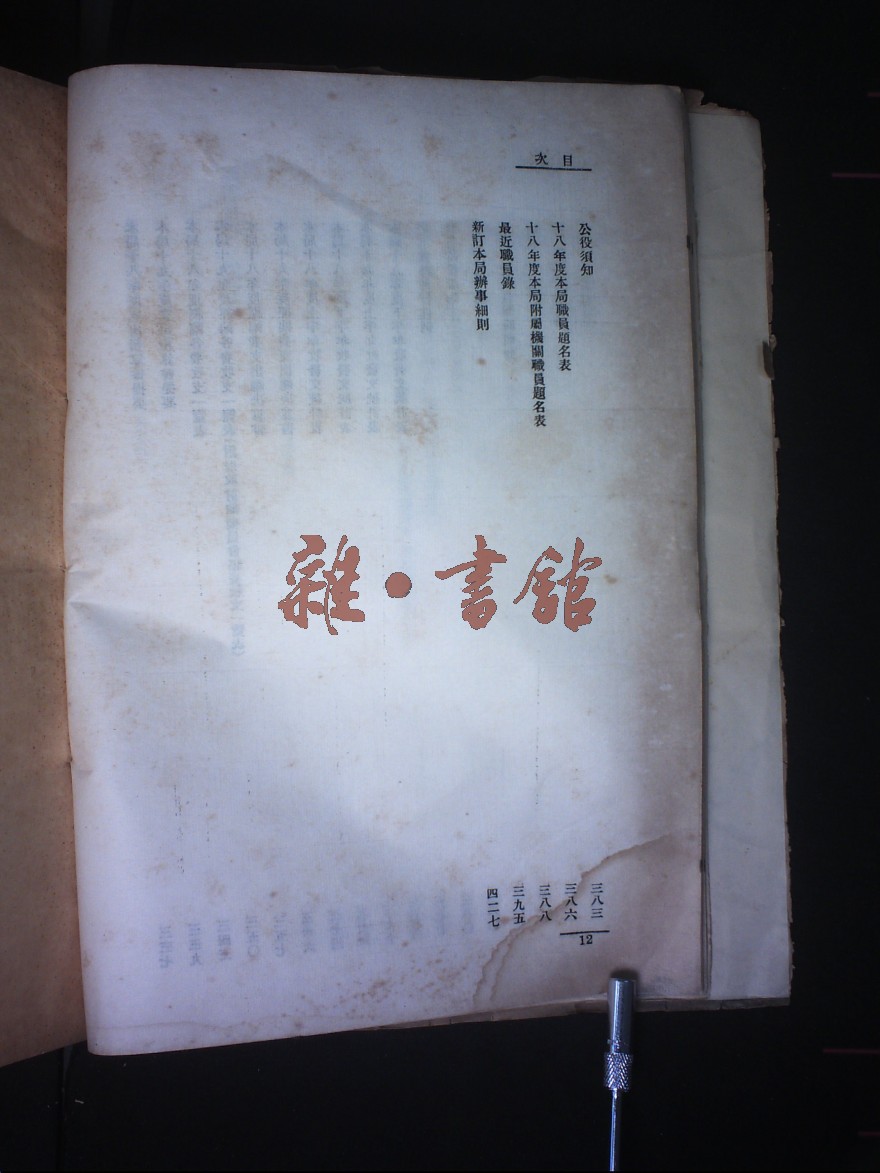 目次
公役須知 三八三
十八年度本局職員題名表 三八六
十八年度本局附屬機關職員題名表 三八八
最近職員錄 三九五
新訂本局辦事細則 四二七
12
雜·書館